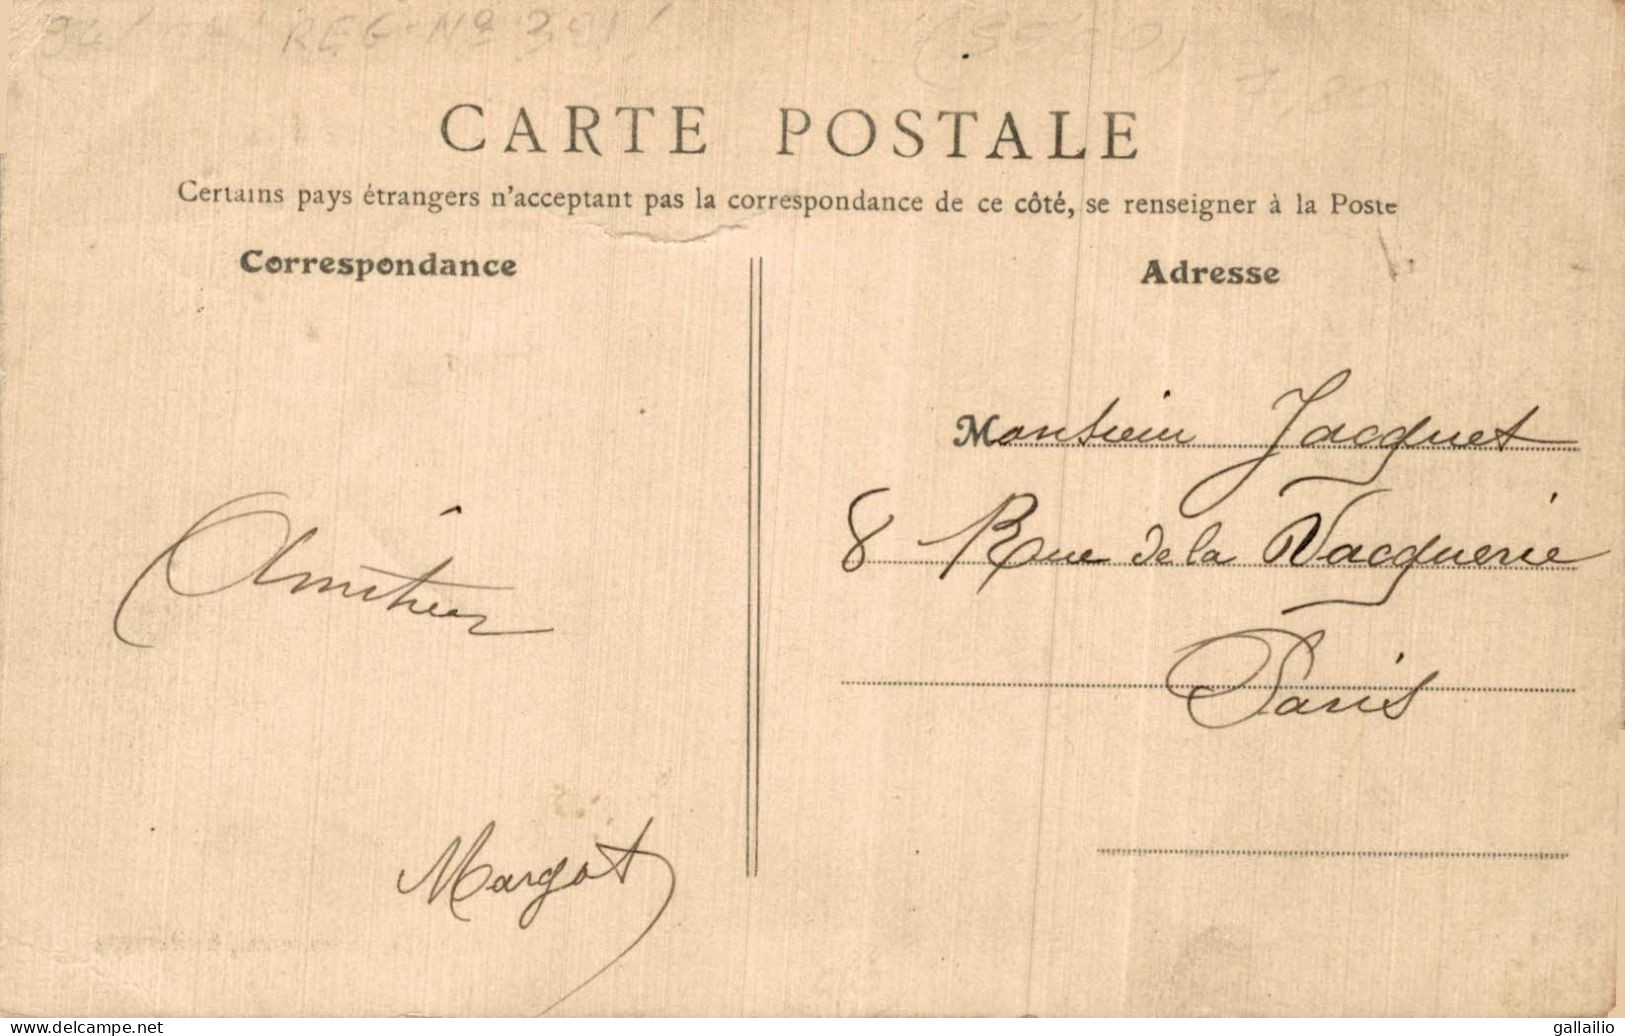 REG-Nº
CARTE POSTALE
Certains pays étrangers n'acceptant pas la correspondance de ce côté, se renseigner à la Poste
Correspondance
Adresse
Monsieur Jacquet
8 Rue de la Vacquerie
Paris
Amitiés
Margot
www.delcampe.net
gallailio